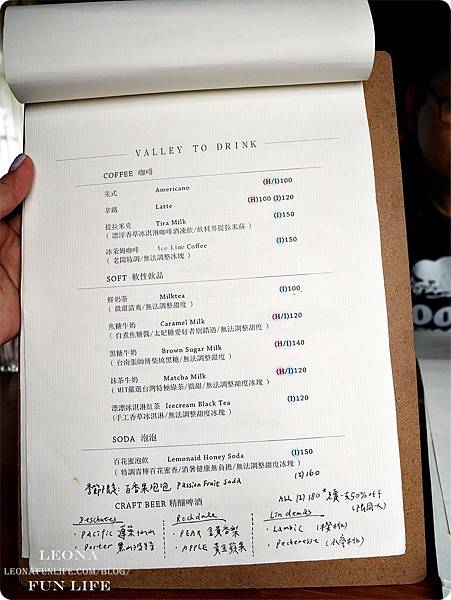 LEONA
FUN LIFE
VALLEY TO DRINK
COFFEE 咖啡
美式 Americano (H/I)100
拿鐵 Latte (H)100 (I)120
提拉米克 Tira Milk (I)150
( 漂浮香草冰淇淋咖啡酒凍飲/飲料界提拉米蘇 )
冰萊姆咖啡 Ice Lime Coffee (I)150
( 老闆特調/無法調整冰塊 )
SOFT 軟性飲品
鮮奶茶 Milktea (I)100
( 微甜清爽/無法調整甜度 )
焦糖牛奶 Caramel Milk (H/I)120
( 自煮焦糖醬/太妃糖愛好者別錯過/無法調整甜度 )
黑糖牛奶 Brown Sugar Milk (H/I)140
( 台南張師傅柴燒黑糖/無法調整甜度 )
抹茶牛奶 Matcha Milk (H/I)120
( MIT嚴選台灣特極綠茶/微甜/無法調整甜度冰塊 )
漂漂冰淇淋紅茶 Icecream Black Tea (I)120
(手工香草冰淇淋/無法調整甜度冰塊 )
SODA 泡泡
百花蜜泡飲 Lemonaid Honey Soda (I)150
( 特調青檸百花蜜香/消暑健康無負擔/無法調整甜度冰塊 )
季節限定: 百香果泡泡 Passion Fruit Soda (I) 160
CRAFT BEER 精釀啤酒
ALL (I) 180 50% off
Deschutes Rochdale Lindemans
· Pacific · PEAR · Lambic
· Porter · APPLE 黃金蘋果 · Pecheresse
LEONA
LEONAFUNLIFE.COM/BLOG/
FUN LIFE